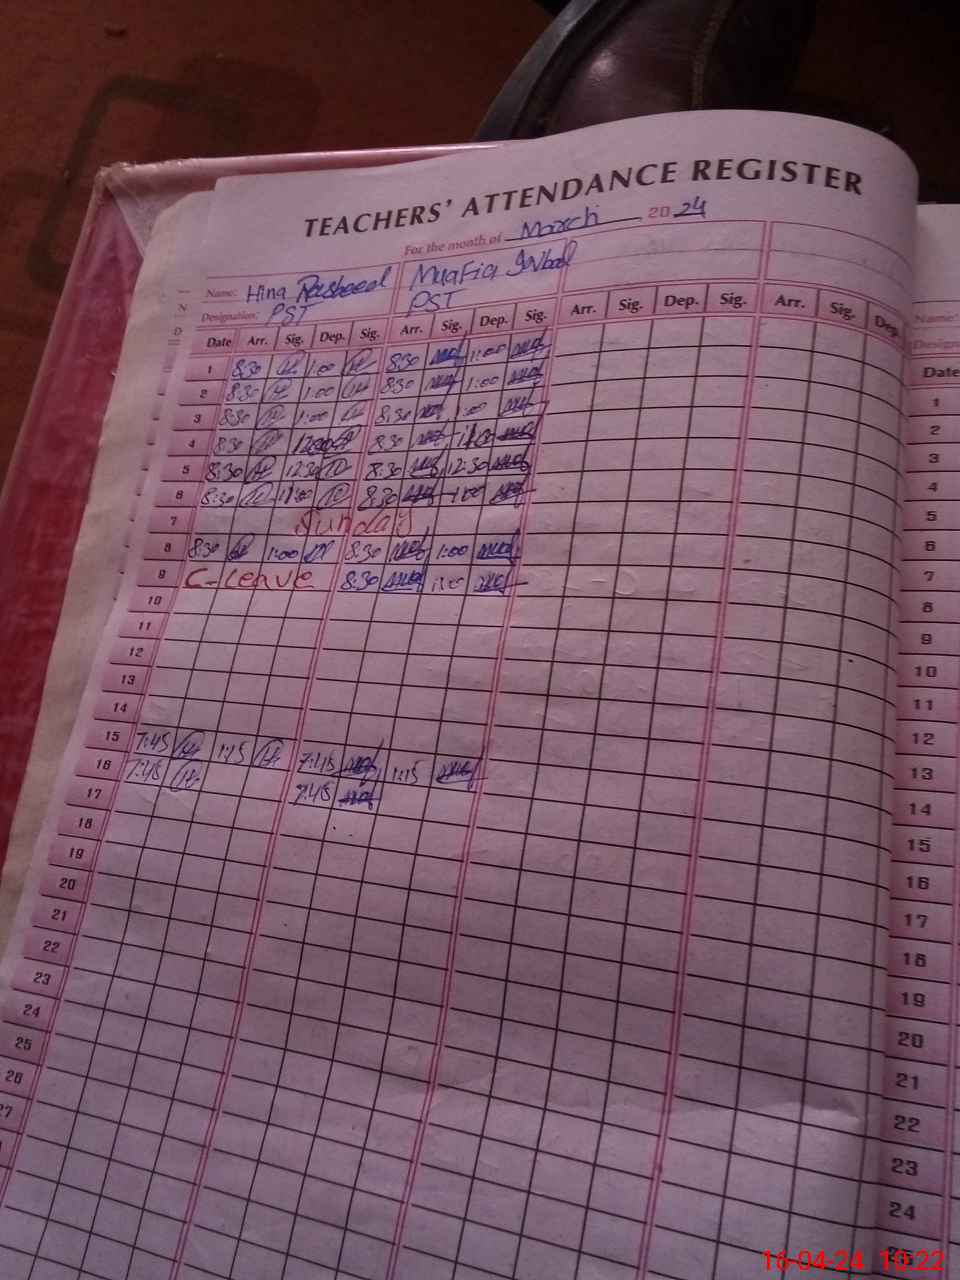 TEACHERS' ATTENDANCE REGISTER
For the month of March 2024
Name: Hina Rasheed
Designation: PST
PST
Date Arr. Sig. Dep. Sig. Arr. Sig. Dep. Sig. Arr. Sig. Dep. Sig. Arr. Sig. Dep.
1 8:30 1:00 8:30 1:00
2 8:30 1:00 8:30 1:00
3 8:30 1:00 8:30 1:00
4 8:30 8:30
5 8:30 12:30 8:30 12:30
6 8:30 8:30 1:00
7 Sunday
8 8:30 1:00 8:30 1:00
9 C-Leave 8:30 1:00
10
11
12
13
14
15 7:45 1:15 7:45 1:15
16 7:45 7:45
17
18
19
20
21
22
23
24
25
26
27
Name:
Date
1
2
3
4
5
6
7
8
9
10
11
12
13
14
15
16
17
18
19
20
21
22
23
24
16-04-24 10:22